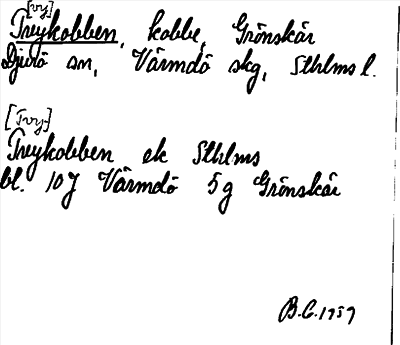 [vy]
Treykobben, kobbe, Grönskär
Djurö sn, Värmdö skg, Sthlms l.
[Tvy]
Treykobben ek Sthlms
bl. 10J Värmdö 5g Grönskär
B.C. 1959